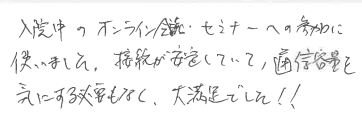 入院中のオンライン会議・セミナーへの参加に
使いました。接続が安定していて、通信容量を
気にする必要もなく、大満足でした!!